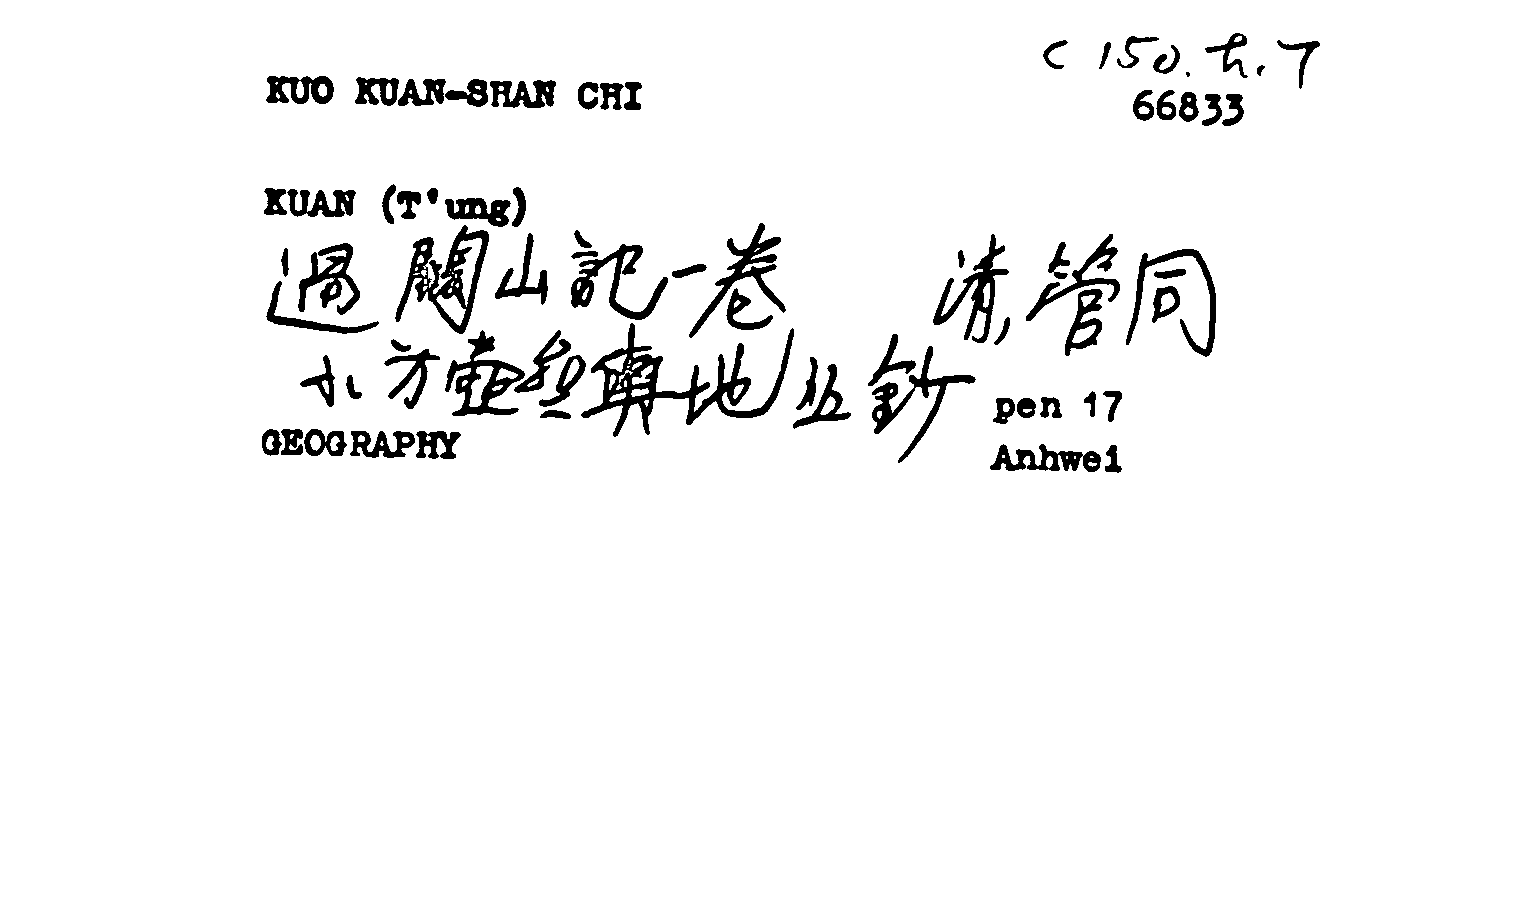 KUO KUAN-SHAN CHI
C 150. 7
66833
KUAN (T'ung)
過關山記一卷 清 管同
小方壺齋輿地叢鈔 pen 17
GEOGRAPHY
Anhwei